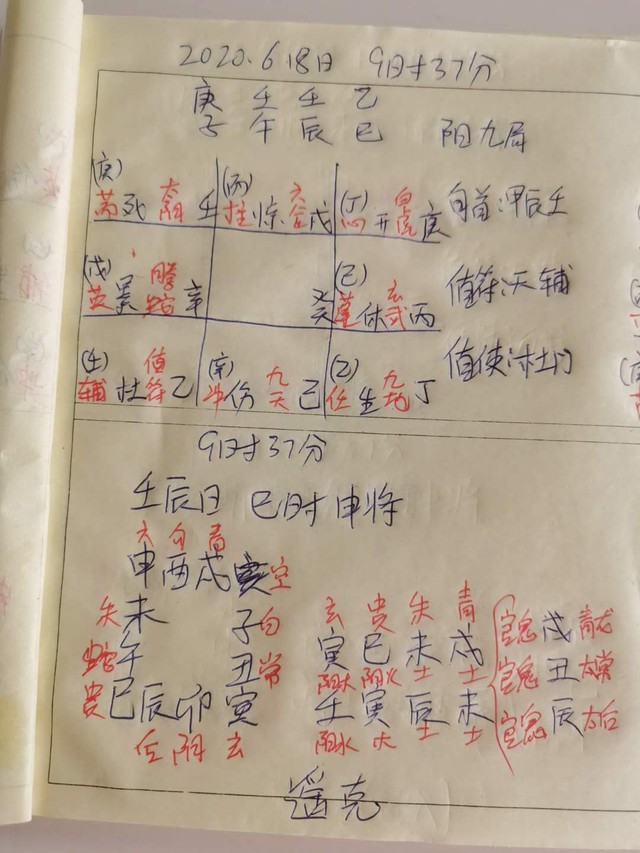 2020.6.18日 9时37分
庚 壬 壬 乙
子 午 辰 巳 阳九局
(庚) (丙) (丁)
芮死 太阴 壬 柱惊 六合 戊 心开 白虎 庚 旬首:甲辰壬
(戊) (己)
英景 腾蛇 辛 癸 蓬休 玄武 丙 值符:天辅
(壬) (辛) (乙)
辅杜 值符 乙 冲伤 九天 己 任生 九地 丁 值使:杜门
9时37分
壬辰日 巳时申将
六 勾 青
申酉戌亥空
朱未 子白 玄 贵 朱 青 官鬼戌青龙
蛇午 丑常 寅 巳 未 戌 官鬼丑太常
阳木 阴火 土 土
贵巳辰卯寅 壬 寅 辰 未 官鬼辰太后
后 阴 玄 阳水 木 土 土
遥克